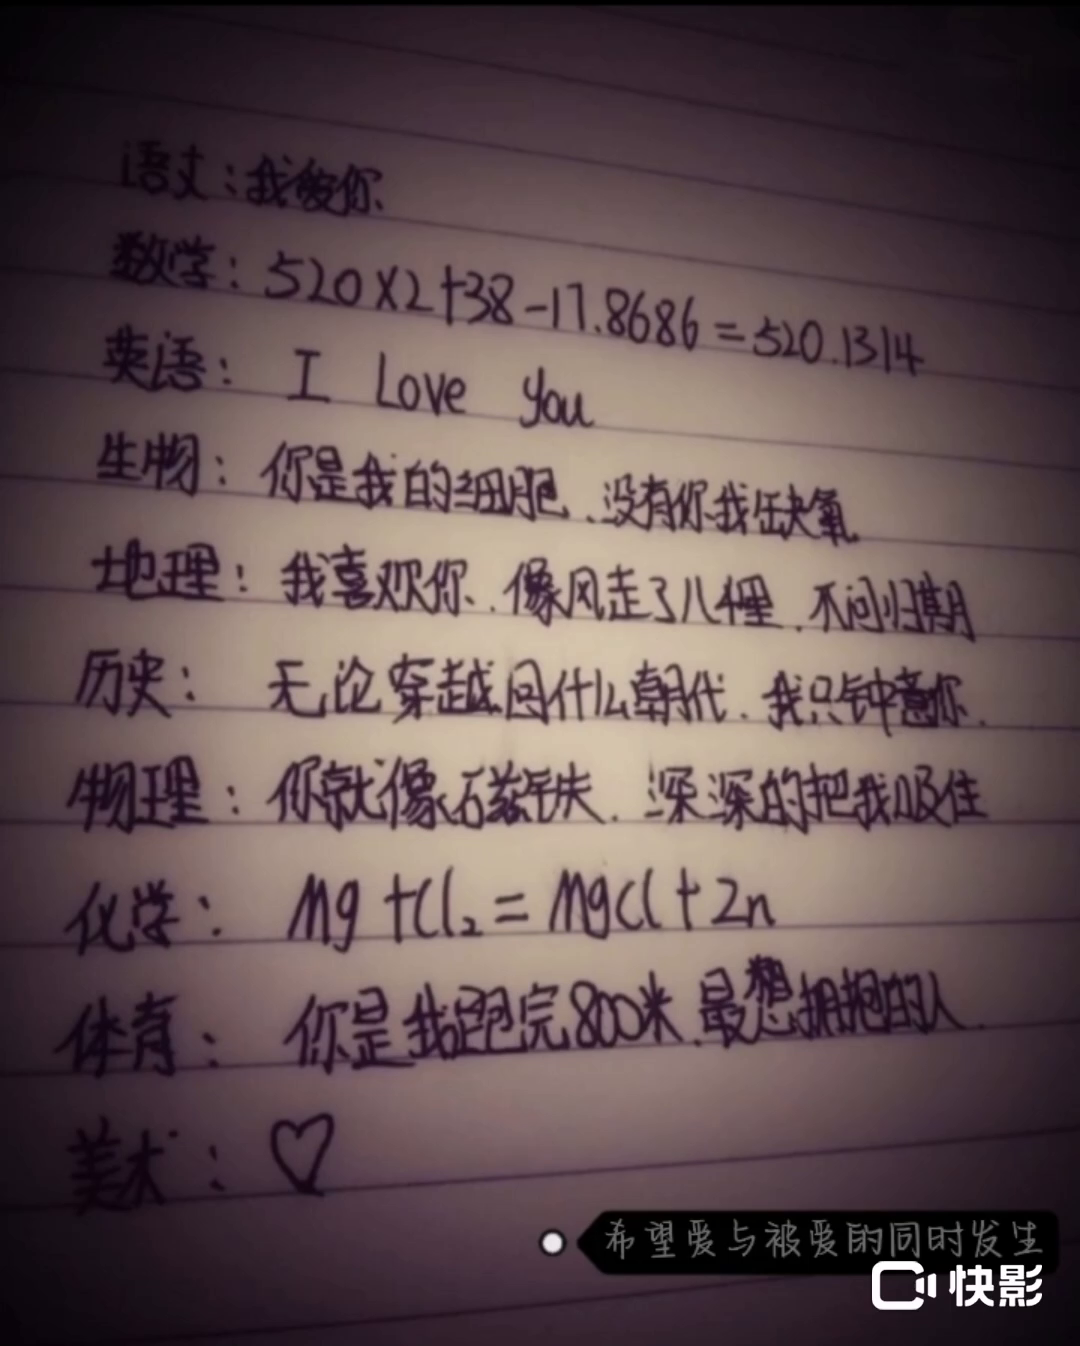 语文：我爱你
数学：520×2+38-17.8686=520.1314
英语：I Love you
生物：你是我的细胞、没有你我缺氧
地理：我喜欢你、像风走了八千里、不问归期
历史：无论穿越回什么朝代、我只钟意你.
物理：你就像磁铁、深深的把我吸住
化学：Mg+Cl₂=MgCl+Zn
体育：你是我跑完800米、最想拥抱的人.
美术：♡
希望爱与被爱的同时发生
快影